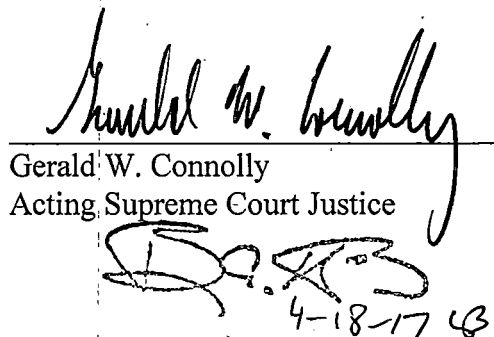 Gerald W. Connolly
Gerald W. Connolly
Acting Supreme Court Justice
4-18-17